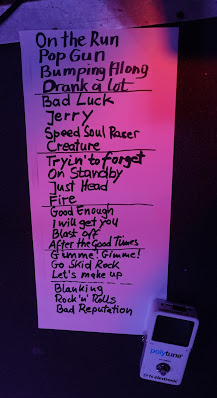 On the Run
Pop Gun
Bumping Along
Drank a lot
Bad Luck
Jerry
Speed Soul Racer
Creature
Tryin' to forget
On Standby
Just Head
Fire
Good Enough
I will get you
Blast off
After the Good Times
Gimme! Gimme!
Go Skid Rock
Let's make up
Blanking
Rock'n' Rolls
Bad Reputation
polytune
tc electronic